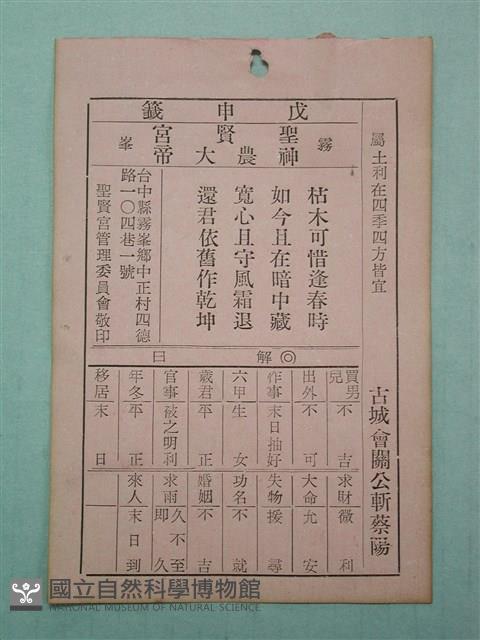 屬土利在四季四方皆宜
古城會關公斬蔡陽
戊申籤
霧峯
聖賢宮
神農大帝
枯木可惜逢春時
如今且在暗中藏
寬心且守風霜退
還君依舊作乾坤
台中縣霧峯鄉中正村四德
路一〇四巷一號
聖賢宮管理委員會敬印
◎解曰
買男兒不吉
求財微利
出外不可
大命允安
作事末日抽好
失物援尋
六甲生女
功名不就
歲君平正
婚姻不吉
官事破之明利
求雨久不至即久
年冬平正
來人末日到
移居末日
國立自然科學博物館
NATIONAL MUSEUM OF NATURAL SCIENCE